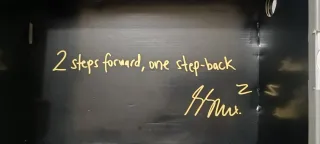 2 steps forward, one step-back